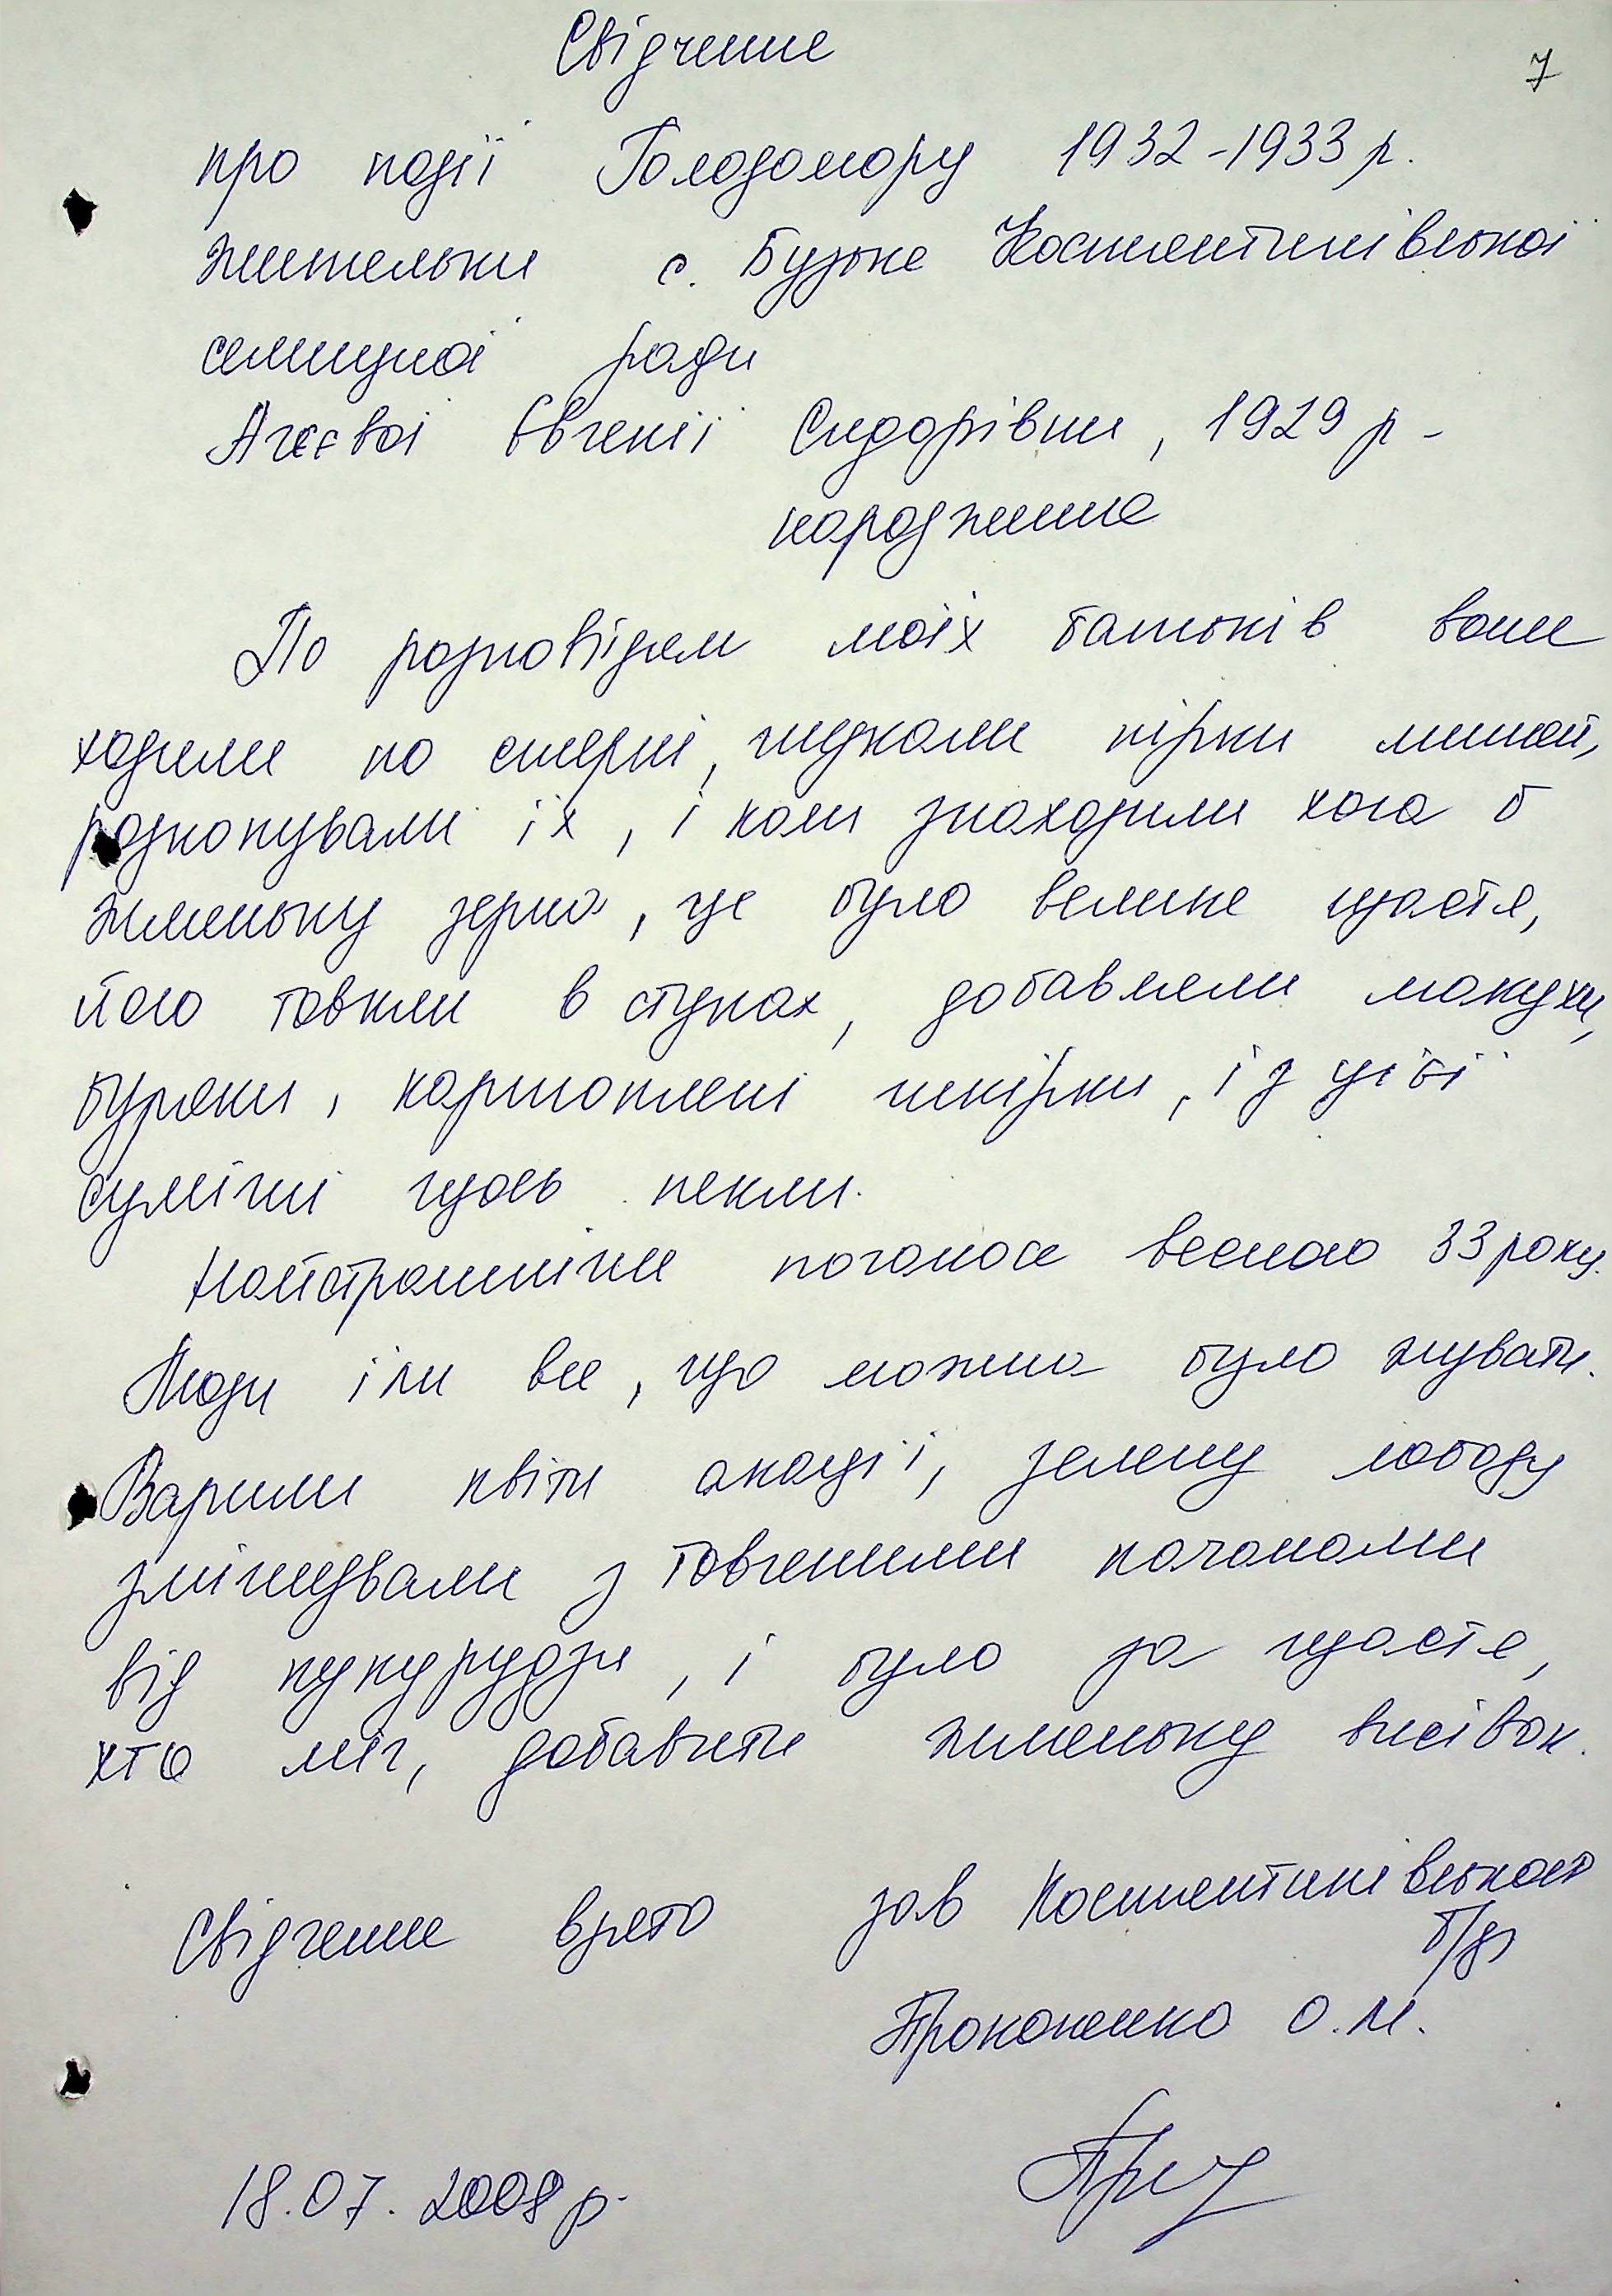 Свідчення
7
про події Голодомору 1932-1933 р.
жительки с. Бузьке Костянтинівської
селищної ради
Агєєвої Євгенії Сидорівни, 1929 р -
народження
По розповідям моїх батьків вони
ходили по стерні, шукали нірки мишей,
розкопували їх, і коли знаходили хоча б
жменьку зерна, це було велике щастя,
його товкли в ступах, добавляли макуху,
буряки, картопляні шкірки, із цієї
суміші щось пекли.
Найстрашніше почалося весною 33 року.
Люди їли все, що можна було жувати.
Варили квіти акації, зелену лободу
змішували з товченими качанами
від кукурудзи, і було за щастя,
хто міг, добавити жменьку висівок.
Свідчення взято зав Костянтинівською
б/ф
О.М.
18.07.2008р.